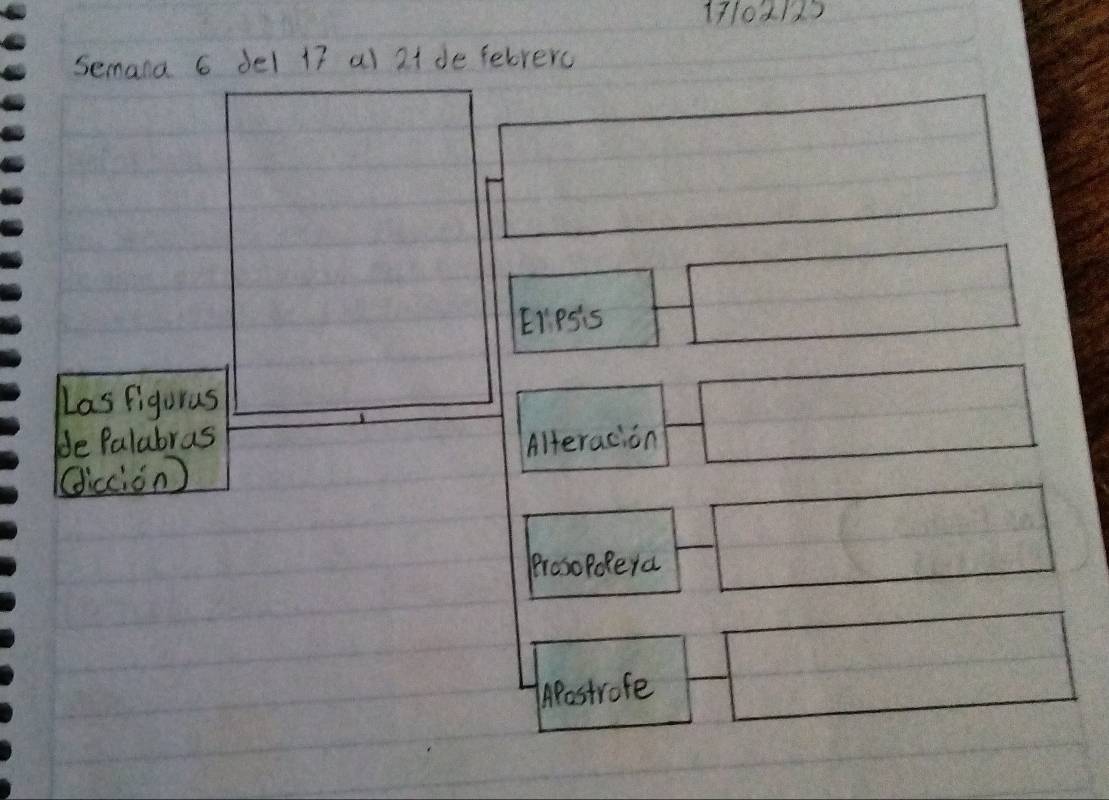 17/02/25
Semana 6 del 17 al 21 de febrero
Las figuras
de Palabras
(dicción)
Elipsis
Alteración
Prosopopeya
Apostrofe